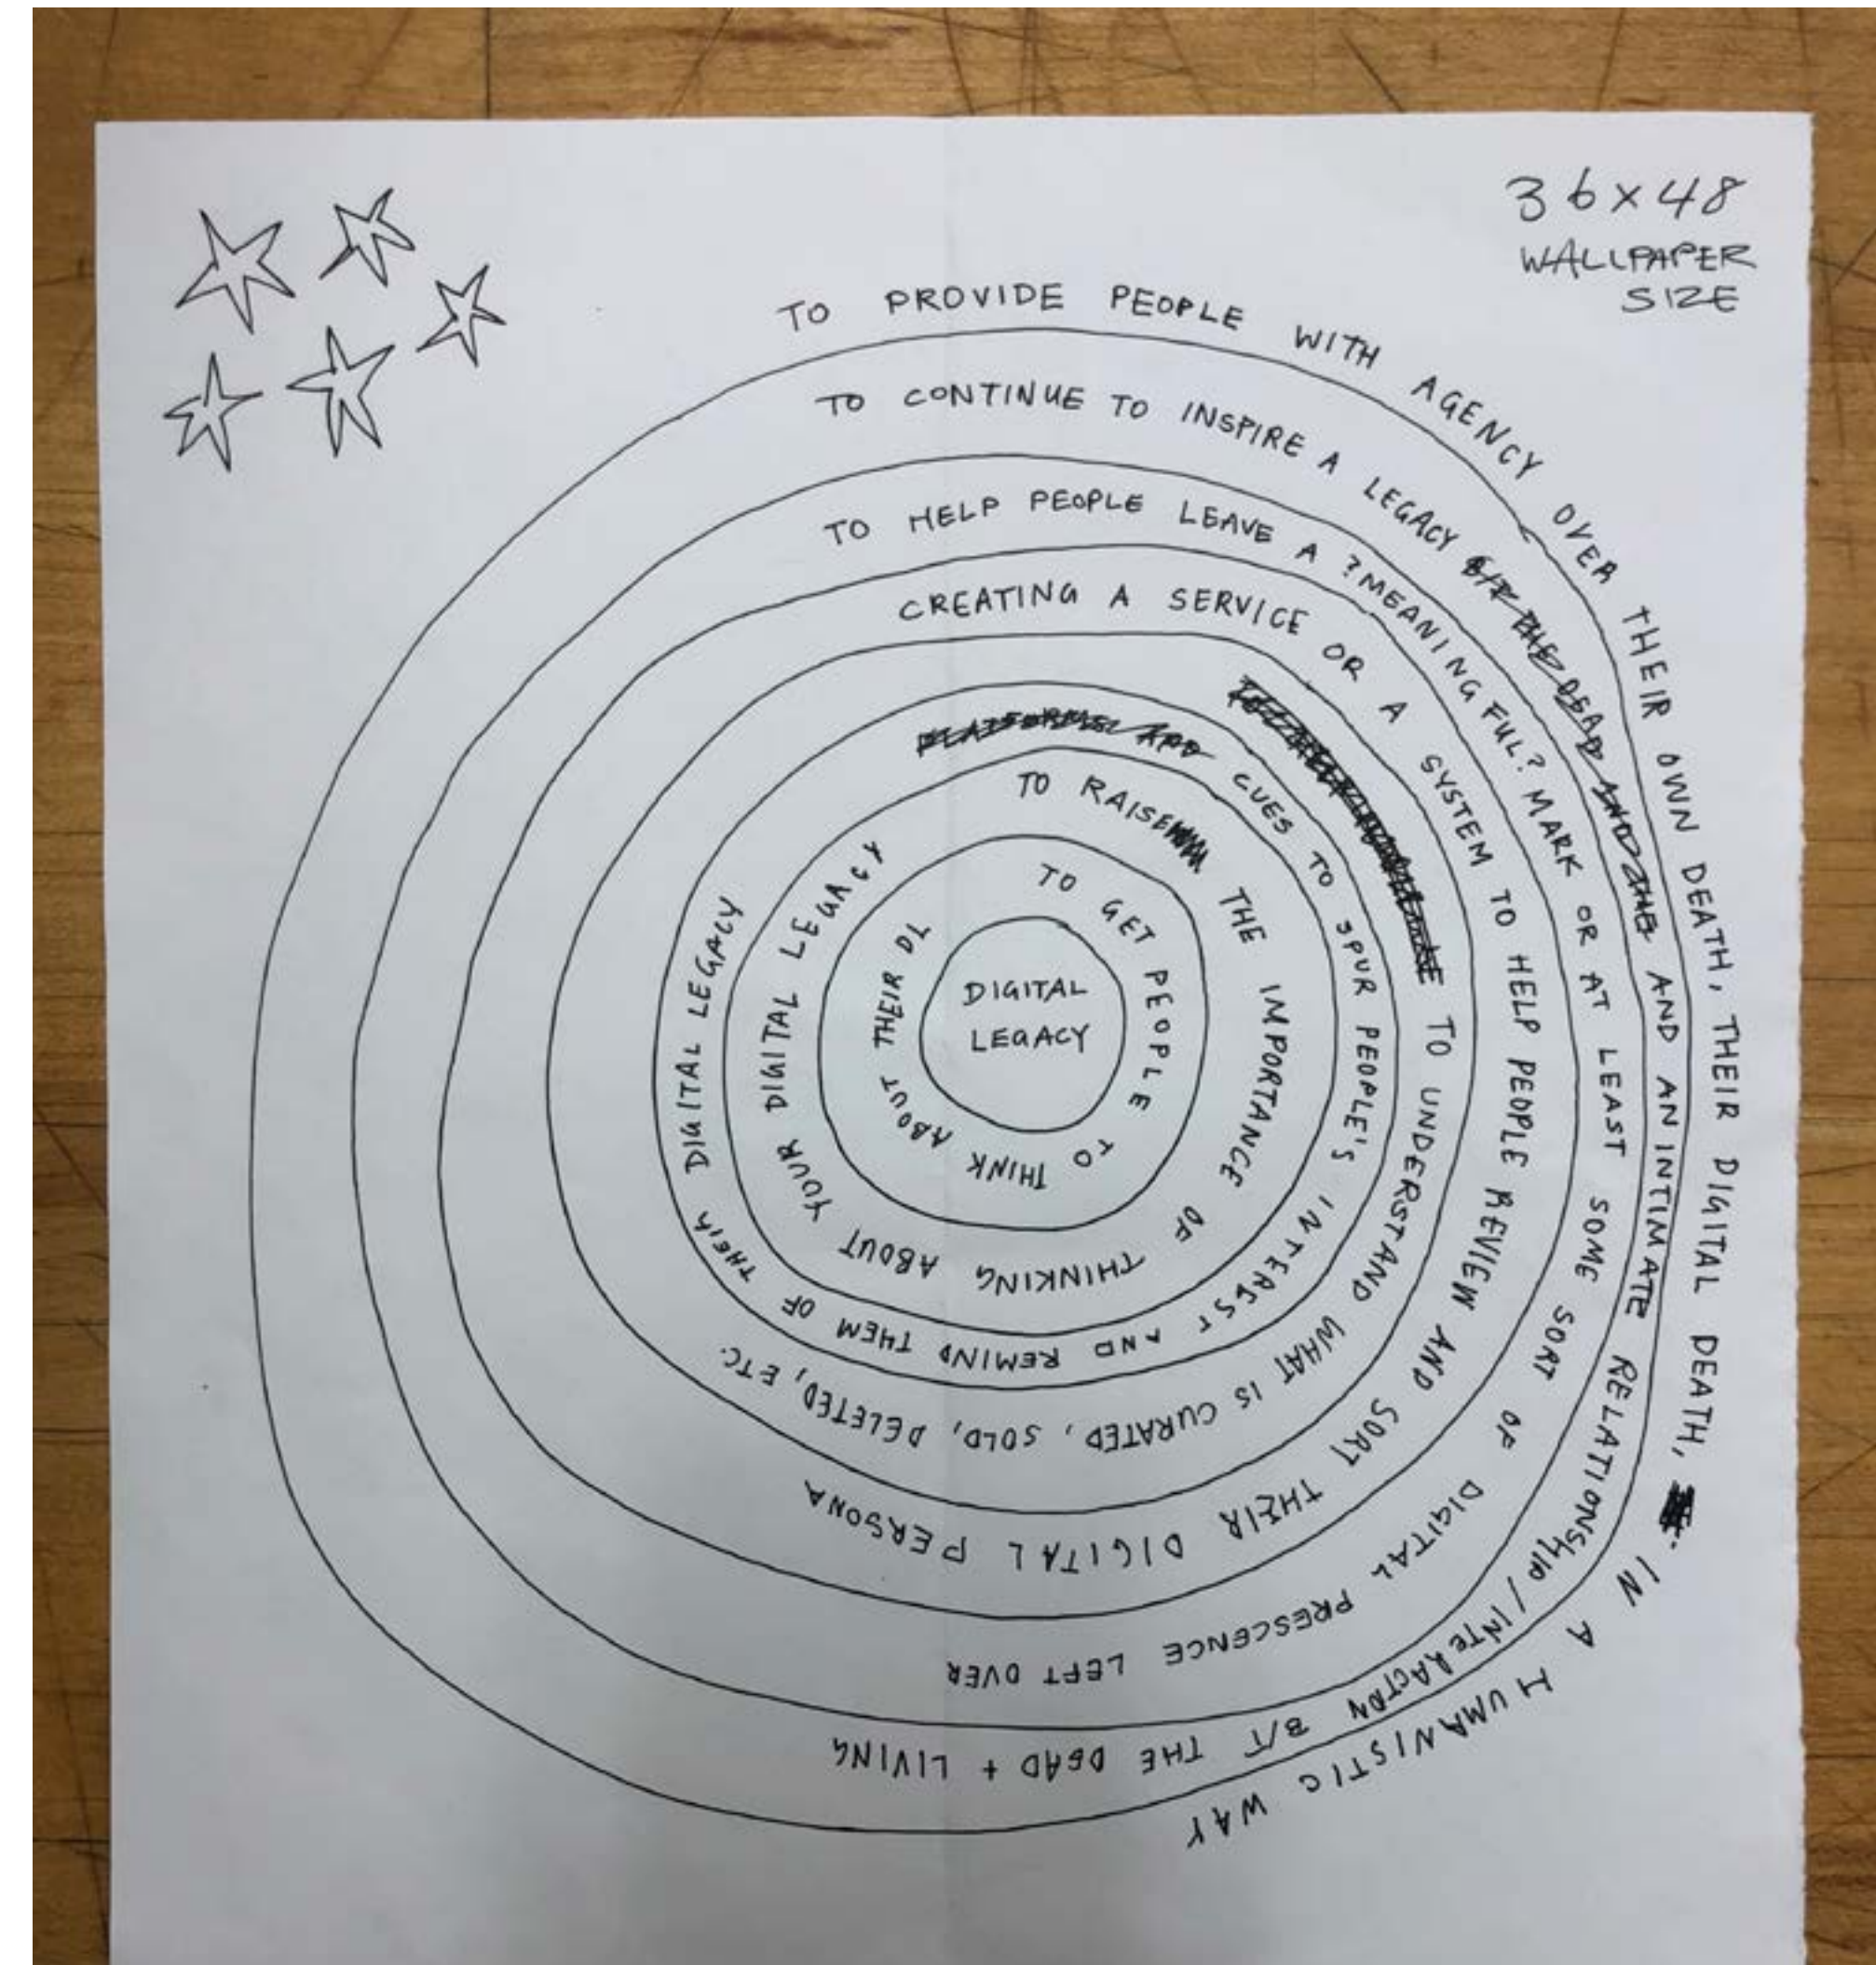 36x48
WALLPAPER
SIZE
TO PROVIDE PEOPLE WITH AGENCY OVER THEIR OWN DEATH, THEIR DIGITAL DEATH, IN A HUMANISTIC WAY
TO CONTINUE TO INSPIRE A LEGACY B/T THE DEAD AND THE AND AN INTIMATE RELATIONSHIP / INTERACTON B/T THE DEAD + LIVING
TO HELP PEOPLE LEAVE A ?MEANINGFUL? MARK OR AT LEAST SOME SORT OF DIGITAL PRESCENCE LEFT OVER
CREATING A SERVICE OR A SYSTEM TO HELP PEOPLE REVIEW AND SORT THEIR DIGITAL PERSONA
TO UNDERSTAND WHAT IS CURATED, SOLD, DELETED, ETC.
CUES TO SPUR PEOPLE'S INTEREST AND REMIND THEM OF THEIR DIGITAL LEGACY
TO RAISE THE IMPORTANCE OF THINKING ABOUT YOUR DIGITAL LEGACY
TO GET PEOPLE TO THINK ABOUT THEIR DL
DIGITAL
LEGACY